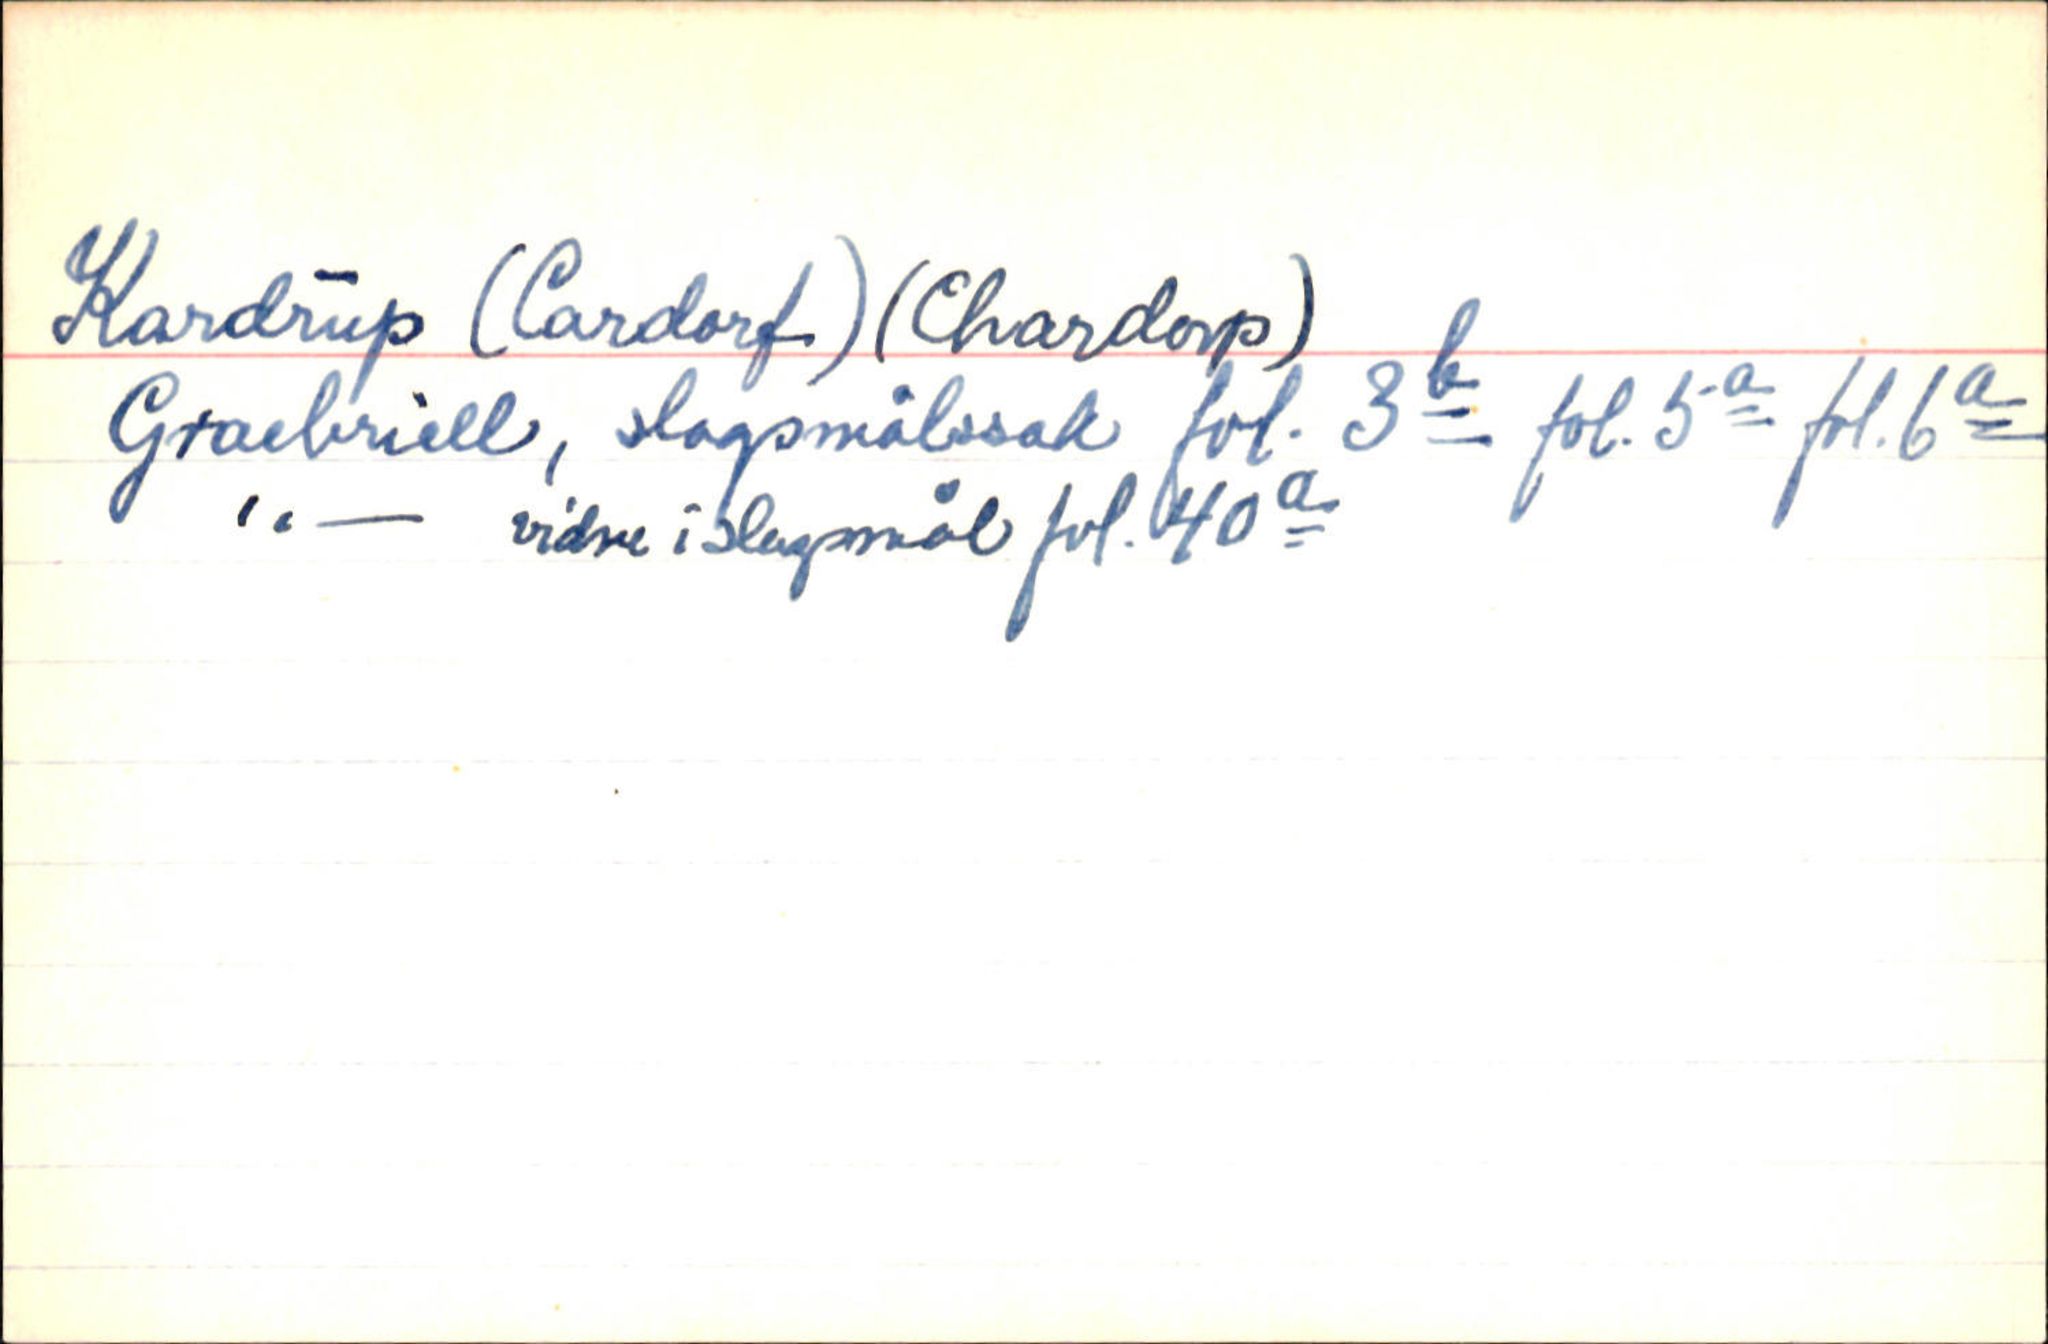 Kardrup (Cardorf) (Chardorp)
Graebriell, slagsmålssak fol. 3b fol. 5a fol. 6a
" — vidne i slagsmål fol. 40a